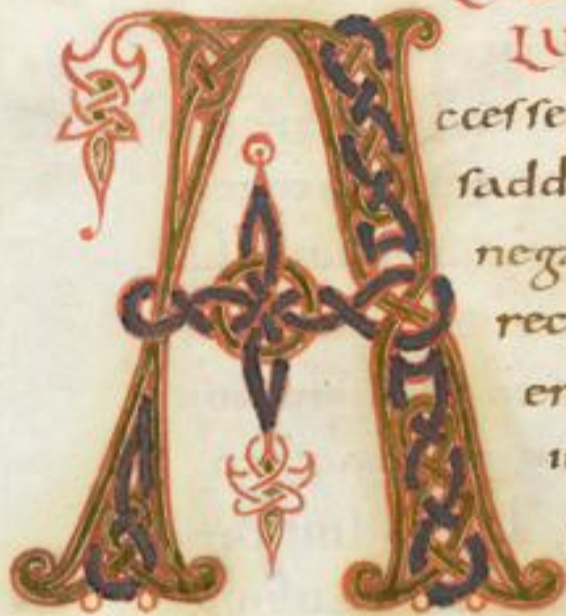 LU
A
ccesse
sadd
nega
rec
er